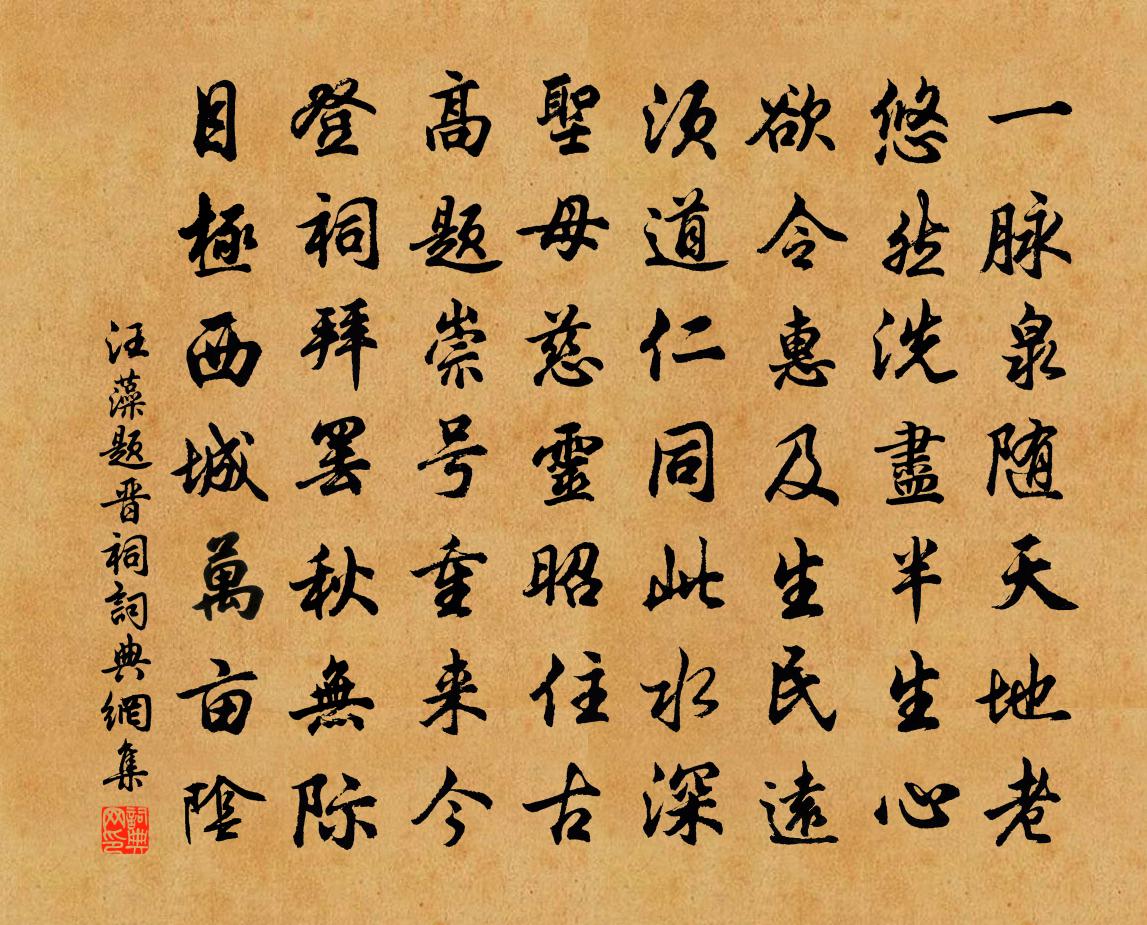 一脉泉随天地老
悠然洗盡半生心
欲令惠及生民遠
须道仁同此水深
聖母慈靈昭住古
高题崇号重来今
登祠拜罢秋無际
目極西城萬亩陰
汪藻题晋祠詞典網集
詞典网印